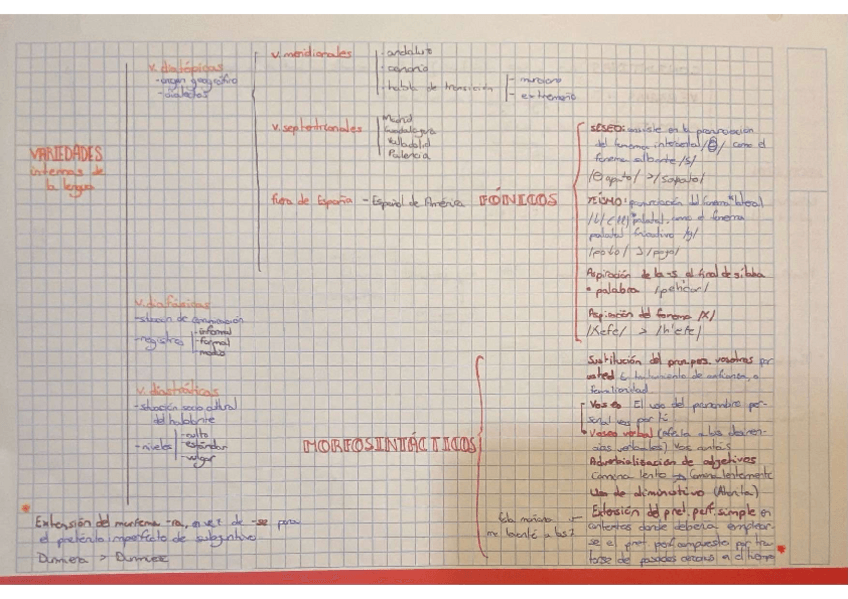 VARIEDADES
internas de
la lengua
v. diatópicas
-origen geográfico
-dialectos
v. meridionales
-andaluz
-canario
-habla de transición
- murciano
- extremeño
v. septentrionales
Madrid
Guadalajara
Valladolid
Palencia
fuera de España - Español de América
v. diafásicas
-situación de comunicación
-registros
-informal
-formal
-medio
v. diastráticas
-situación socio cultural
del hablante
-niveles
-culto
-estándar
-vulgar
FÓNICOS
SESEO: consiste en la pronunciación
del fonema interdental /θ/ como el
fonema /s/
/θapato/ > /sapato/
YEÍSMO: pronunciación del fonema lateral
palatal como el fonema
palatal fricativo /y/
/poλo/ > /poyo/
Aspiración de la -s al final de sílaba
o palabra
Aspiración del fonema /X/
/Xefe/ > /h'efe/
MORFOSINTÁCTICOS
Sustitución del pron. pers. vosotros por
usted tratamiento de confianza o
familiaridad
Voseo El uso del pronombre per-
sonal vos por tú
Voseo verbal (afecta a las desinen-
cias verbales) Vos
Adverbialización de adjetivos
Camina lento -> Camina lentamente
Uso de diminutivo (Ahorita)
Extensión del pret. perf. simple en
contextos donde debería emplear-
se el pret perf compuesto por tra-
tarse de pasados cercanos en el tiempo
Esta mañana
me levanté a las 7
* Extensión del morfema -ra, en vez de -se para
el pretérito imperfecto de subjuntivo
Durmiera > Durmiese